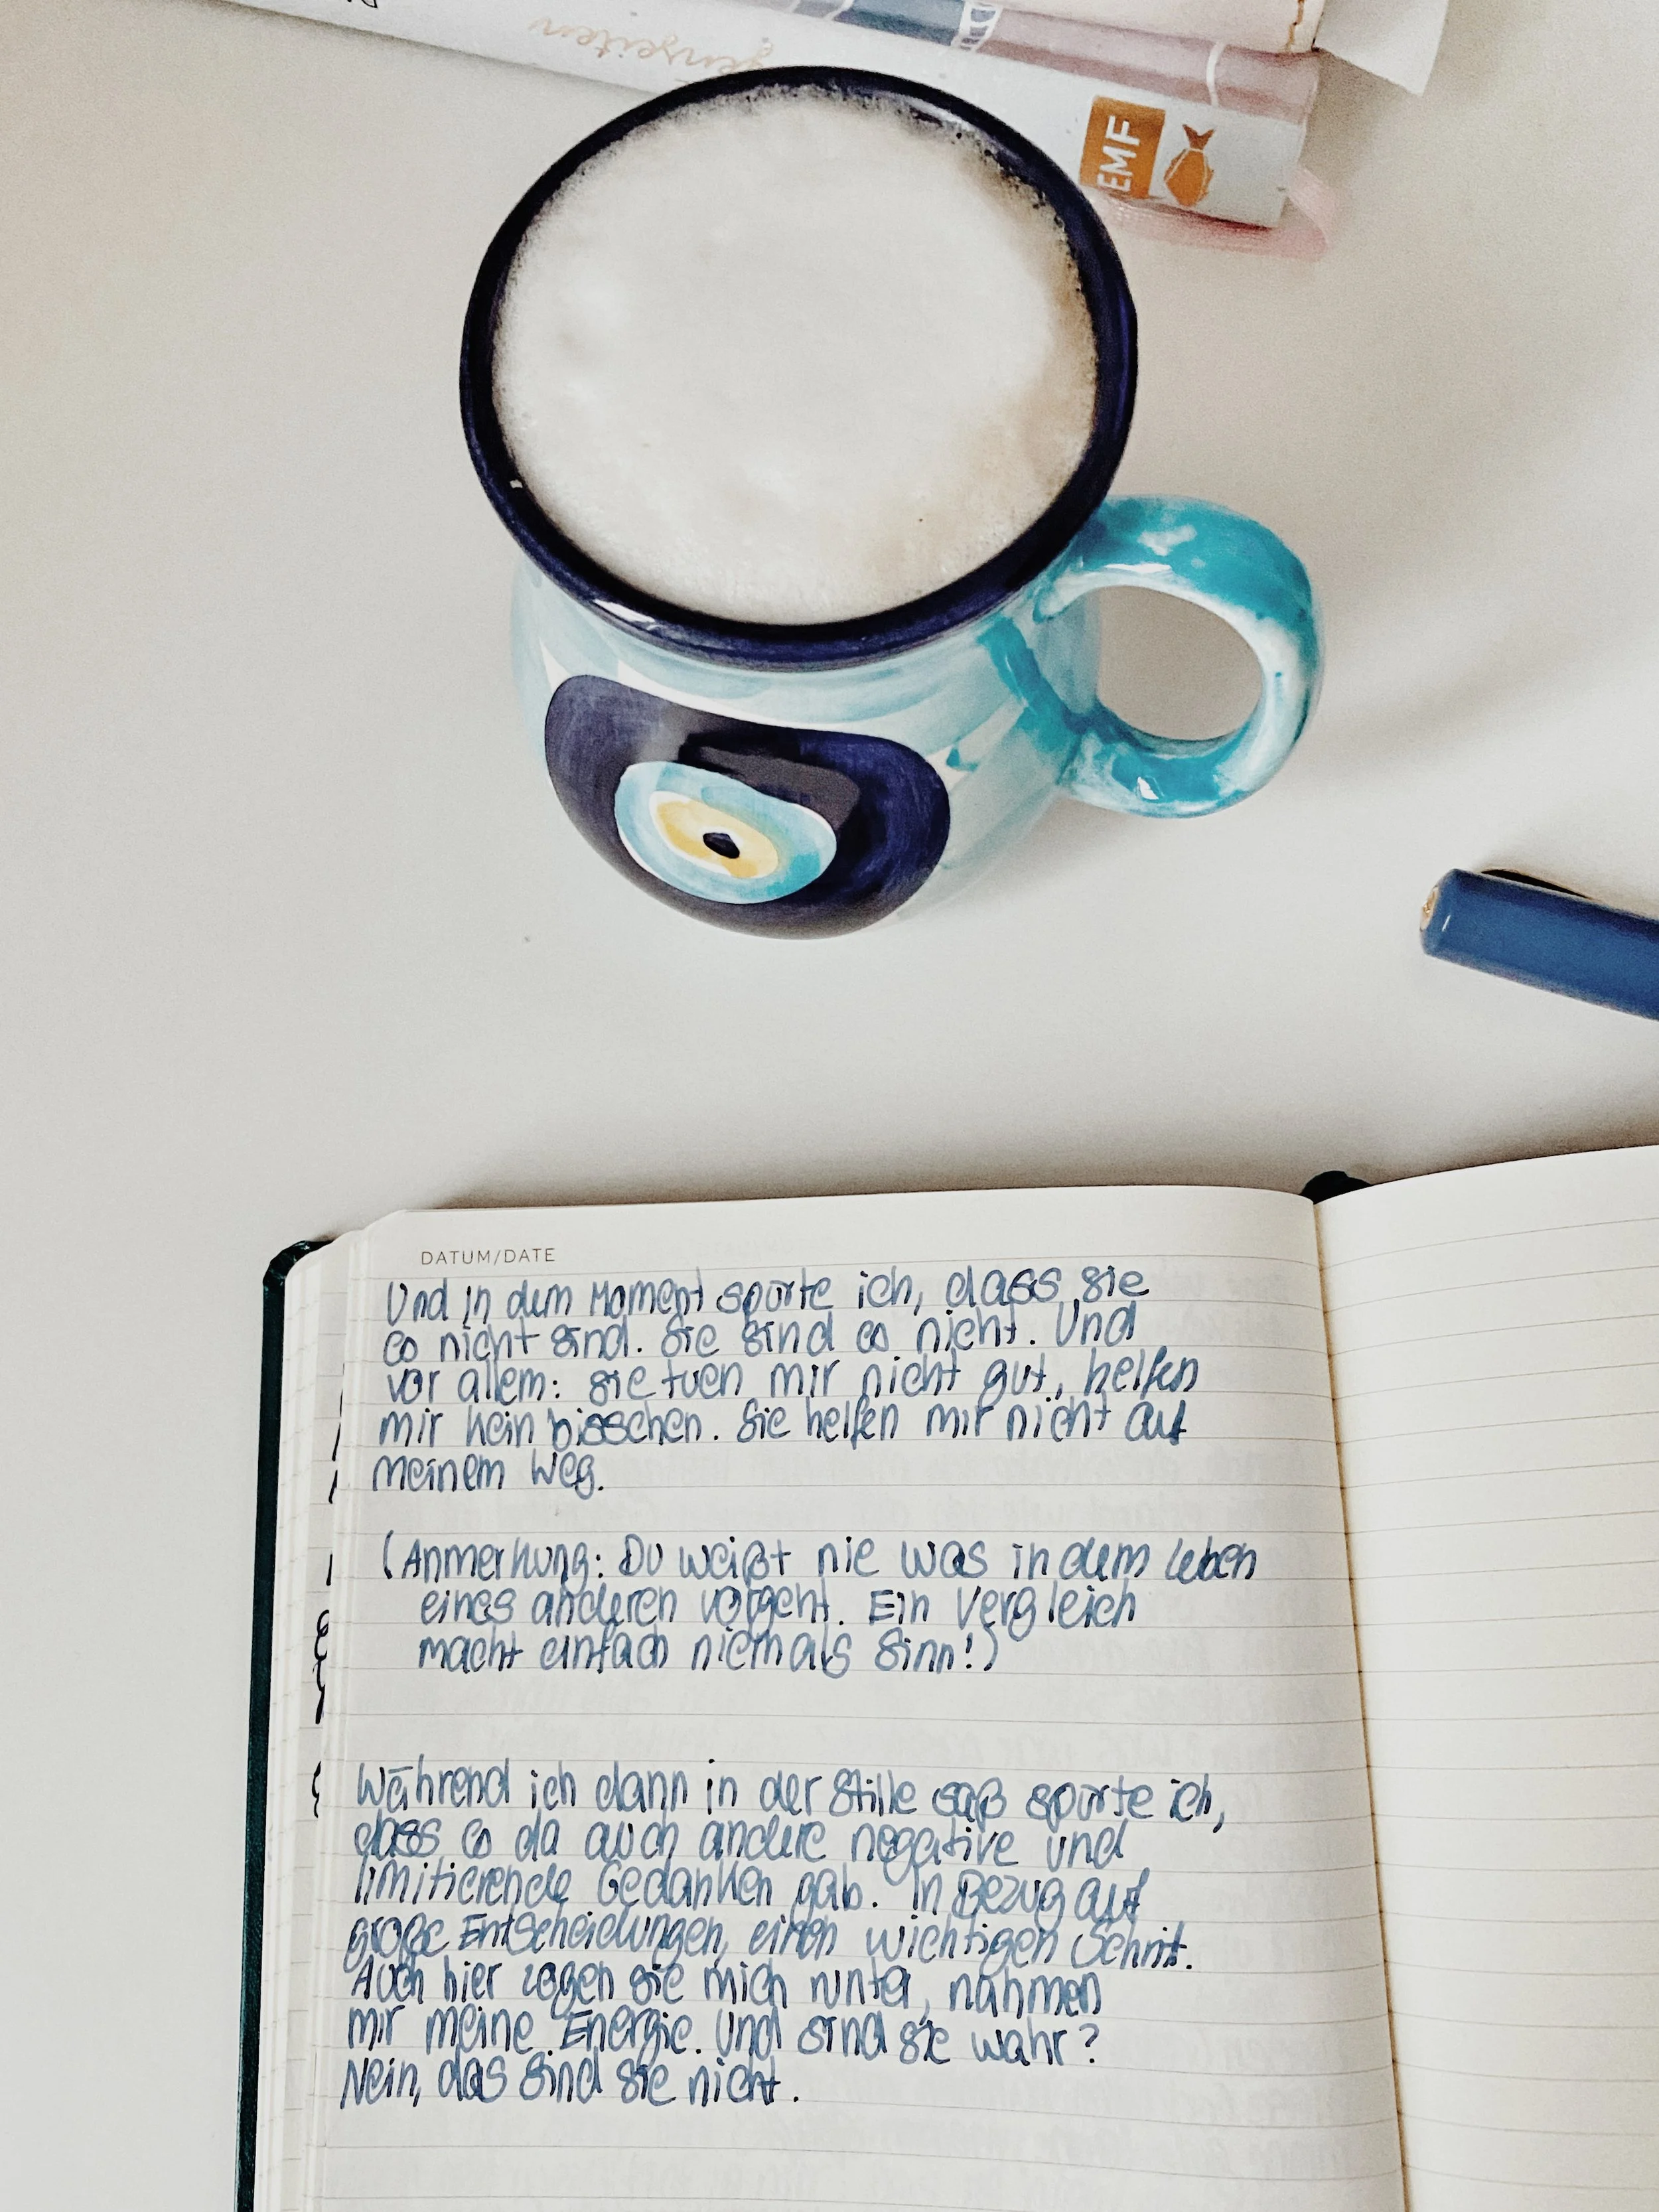 genzeiten
EMF
DATUM/DATE
Und in dem Moment spürte ich, dass sie
es nicht sind. Sie sind es nicht. Und
vor allem: sie tuen mir nicht gut, helfen
mir kein bisschen. Sie helfen mir nicht auf
meinem Weg.
(Anmerkung: Du weißt nie was in dem Leben
eines anderen vorgeht. Ein Vergleich
macht einfach niemals Sinn!)
Während ich dann in der Stille saß spürte ich,
dass es da auch andere negative und
limitierende Gedanken gab. In Bezug auf
große Entscheidungen, einen wichtigen Schritt.
Auch hier zogen sie mich runter, nahmen
mir meine Energie. Und sind sie wahr?
Nein, das sind sie nicht.